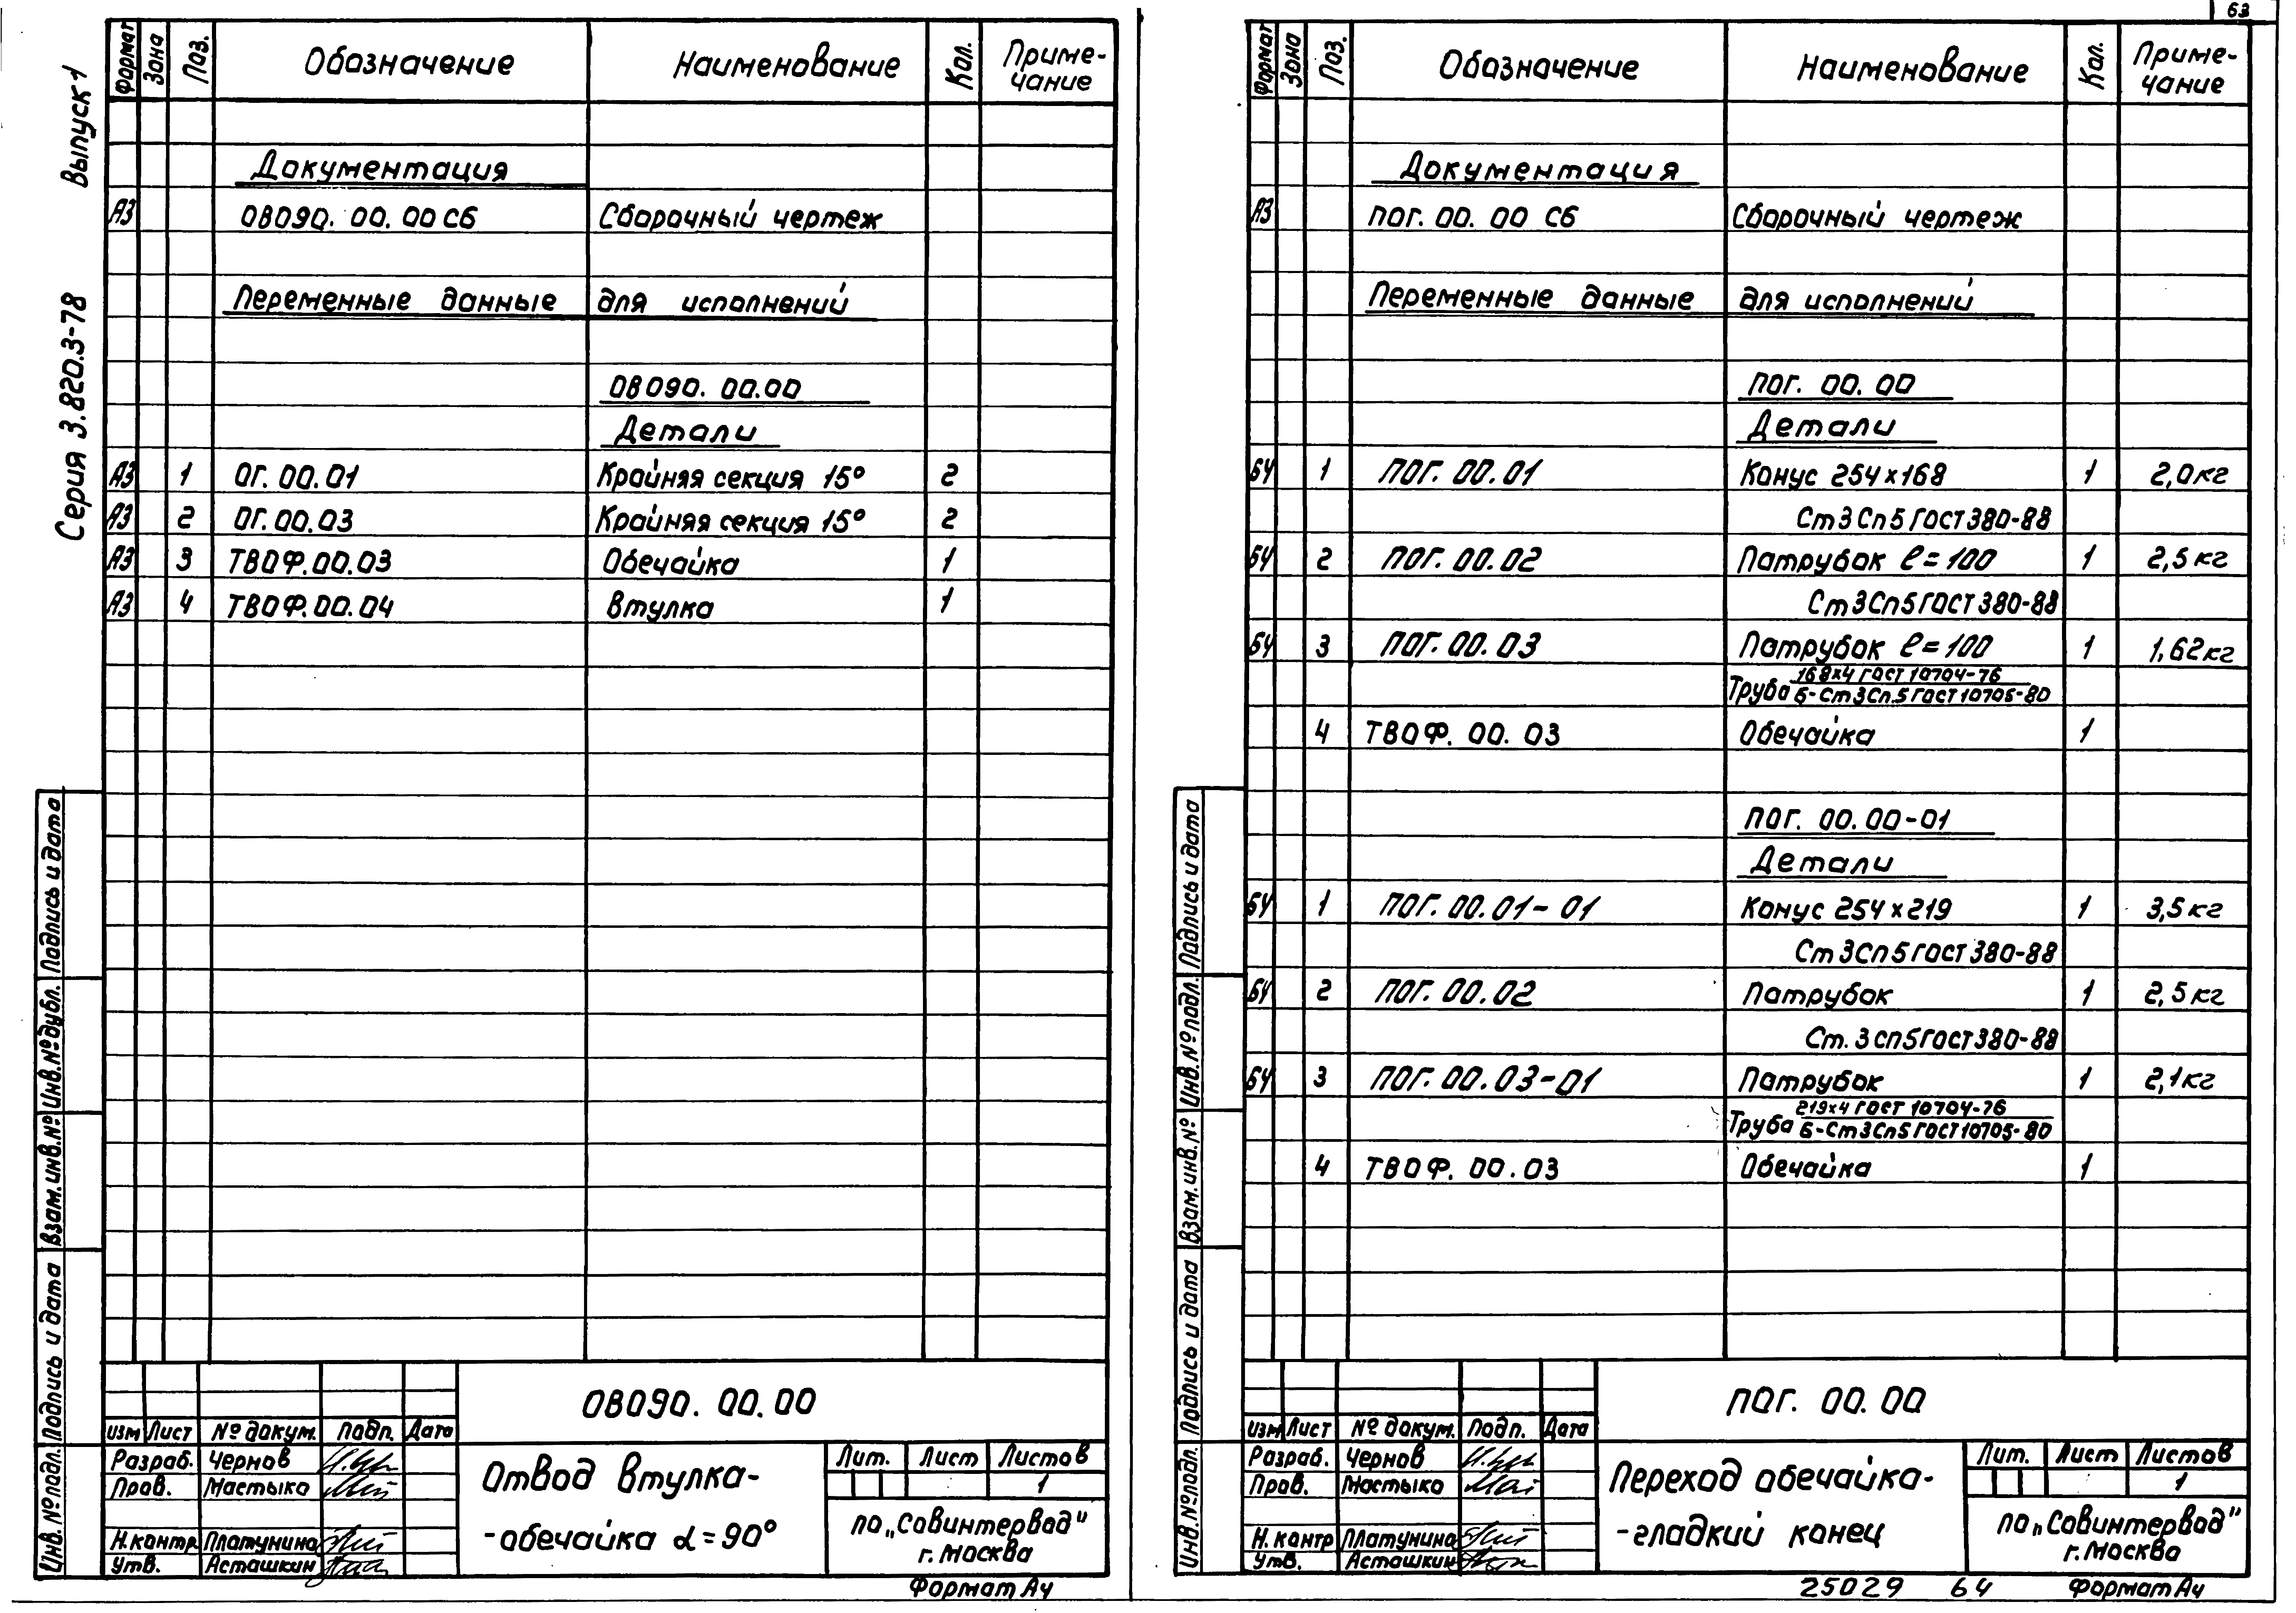 Серия 3.820.3-78 Выпуск 1
Формат Зона Поз. Обозначение Наименование Кол. Приме-
чание
Документация
А3 ОВ090. 00. 00 СБ Сборочный чертеж
Переменные данные для исполнений
ОВ090. 00.00
Детали
А3 1 ОГ. 00.01 Крайняя секция 15° 2
А3 2 ОГ.00.03 Крайняя секция 15° 2
А3 3 ТВОФ.00.03 Обечайка 1
А3 4 ТВОФ.00.04 Втулка 1
Инв.№подл. Подпись и дата Взам.инв.№ Инв.№дубл. Подпись и дата
ОВ090. 00.00
Изм Лист № докум. Подп. Дата
Разраб. Чернов
Пров. Мастыко
Н.контр Платунина
Утв. Асташкин
Отвод втулка-
-обечайка α=90°
Лит. Лист Листов
1
ПО „Совинтервод"
г. Москва
Формат А4
63
Формат Зона Поз. Обозначение Наименование Кол. Приме-
чание
Документация
А3 ПОГ. 00. 00 СБ Сборочный чертеж
Переменные данные для исполнений
ПОГ. 00.00
Детали
БЧ 1 ПОГ. 00.01 Конус 254×168 1 2,0кг
Ст3Сп5 ГОСТ 380-88
БЧ 2 ПОГ. 00.02 Патрубок ℓ=100 1 2,5кг
Ст3Сп5 ГОСТ 380-88
БЧ 3 ПОГ. 00.03 Патрубок ℓ=100 1 1,62кг
168×4 ГОСТ 10704-76
Труба Б-Ст3Сп.5 ГОСТ 10705-80
4 ТВОФ. 00. 03 Обечайка 1
ПОГ. 00.00-01
Детали
БЧ 1 ПОГ. 00.01-01 Конус 254×219 1 3,5кг
Ст3Сп5 ГОСТ 380-88
БЧ 2 ПОГ. 00.02 Патрубок 1 2,5кг
Ст.3сп5 ГОСТ 380-88
БЧ 3 ПОГ. 00.03-01 Патрубок 1 2,1кг
219×4 ГОСТ 10704-76
Труба Б-Ст3Сп5 ГОСТ 10705-80
4 ТВОФ. 00.03 Обечайка 1
Инв.№подл. Подпись и дата Взам.инв.№ Инв.№подл. Подпись и дата
ПОГ. 00.00
Изм Лист № докум. Подп. Дата
Разраб. Чернов
Пров. Мастыко
Н.контр Платунина
Утв. Асташкин
Переход обечайка-
-гладкий конец
Лит. Лист Листов
1
ПО „Совинтервод"
г. Москва
25029 64 Формат А4